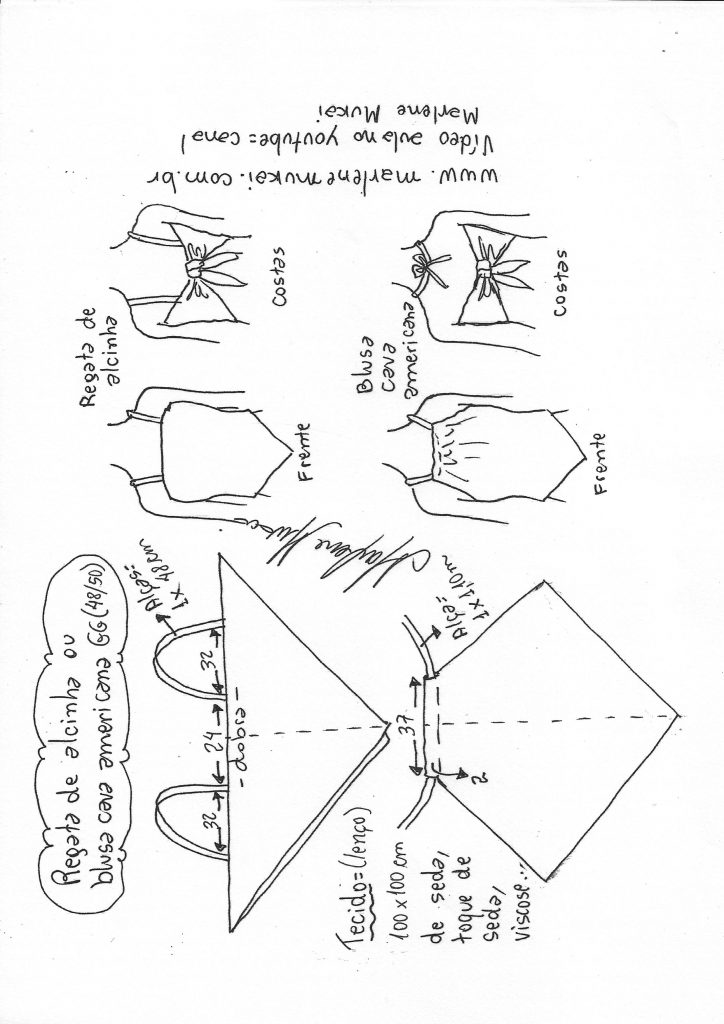 Regata de alcinha ou
blusa cava americana GG (48/50)
Alças=
1x 48cm
32
24
32
-dobra-
Tecido=(lenço)
100x100 cm
de seda,
toque de
seda,
viscose...
Alça=
1x1,10m
37
2
Marlene Mukai
Regata de
alcinha
Frente
Costas
Blusa
cava
americana
Frente
Costas
www.marlenemukai.com.br
Vídeo aula no youtube= canal
Marlene Mukai